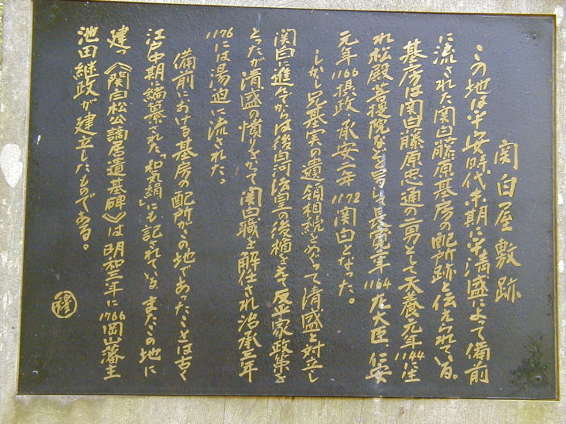 関白屋敷跡
この地は平安時代末期に平清盛によって備前
に流された関白藤原基房の配所跡と伝えられている。
基房は関白藤原忠通の二男として天養元年1144に生
れ松殿、菩提院などと号した。長寛二年1164左大臣、仁安
元年1166摂政、承安二年1172関白となった。
しかし兄基実の遺領相続をめぐって清盛と対立し
関白に進んでからは後白河法皇の後楯を得て反平家政策を
とったが清盛の憤りをかって関白職を解任され治承三年
1176には湯迫に流された。
備前における基房の配所がこの地であったことは古く
江戸中期編纂された『和気絹』にも記されている。またこの地に
建つ《関白松公謫居遺墓碑》は明和三年に1766岡山藩主
池田継政が建立したものである。